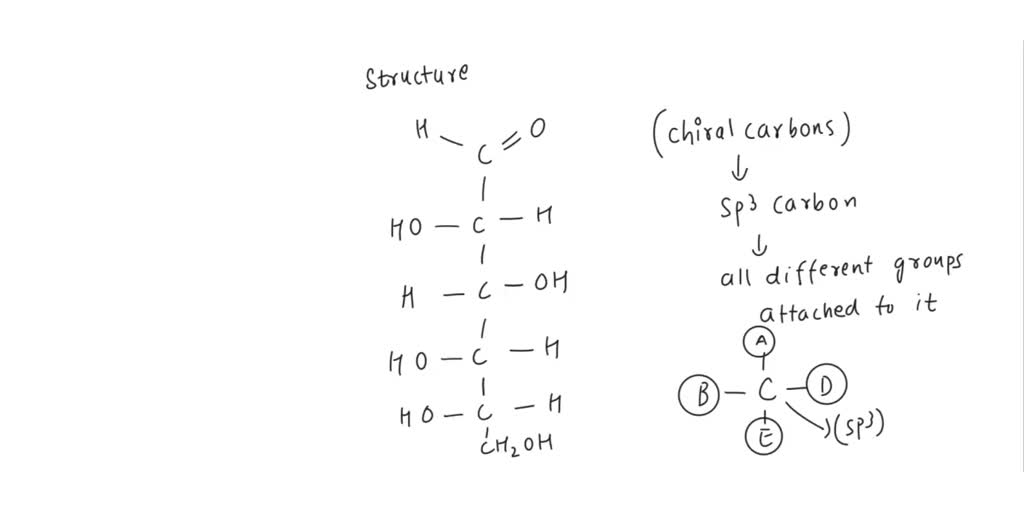 Structure
H
C = O
HO - C - H
H - C - OH
HO - C - H
HO - C - H
CH2OH
(chiral carbons)
↓
Sp3 carbon
↓
all different groups
attached to it
A
B - C - D
E
(sp3)